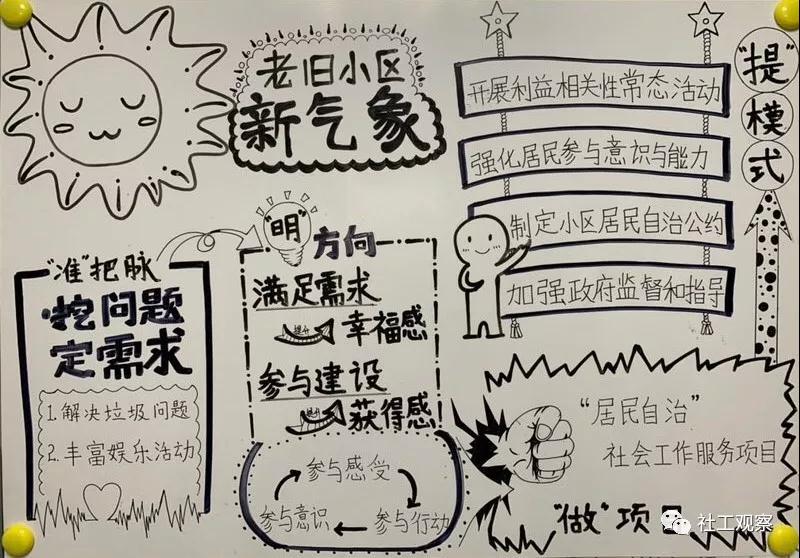 老旧小区
新气象
"准"把脉
挖问题
定需求
1.解决垃圾问题
2.丰富娱乐活动
"明"方向
满足需求
提升
幸福感
参与建设
提升
获得感
参与感受
参与行动
参与意识
"提"模式
开展利益相关性常态活动
强化居民参与意识与能力
制定小区居民自治公约
加强政府监督和指导
"居民自治"
社会工作服务项目
"做"项
社工观察